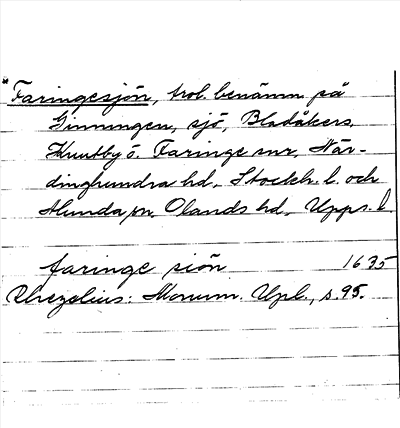 *Faringesjön, trol. benämn. på
Ginningen, sjö, Bladåkers,
Knutby o. Faringe snr, När-
dinghundra hd, Stockh. l. och
Alunda sn Olands hd, Upps. l.
faringe siön 1635
Rhezelius: Monum. Upl., s. 95.